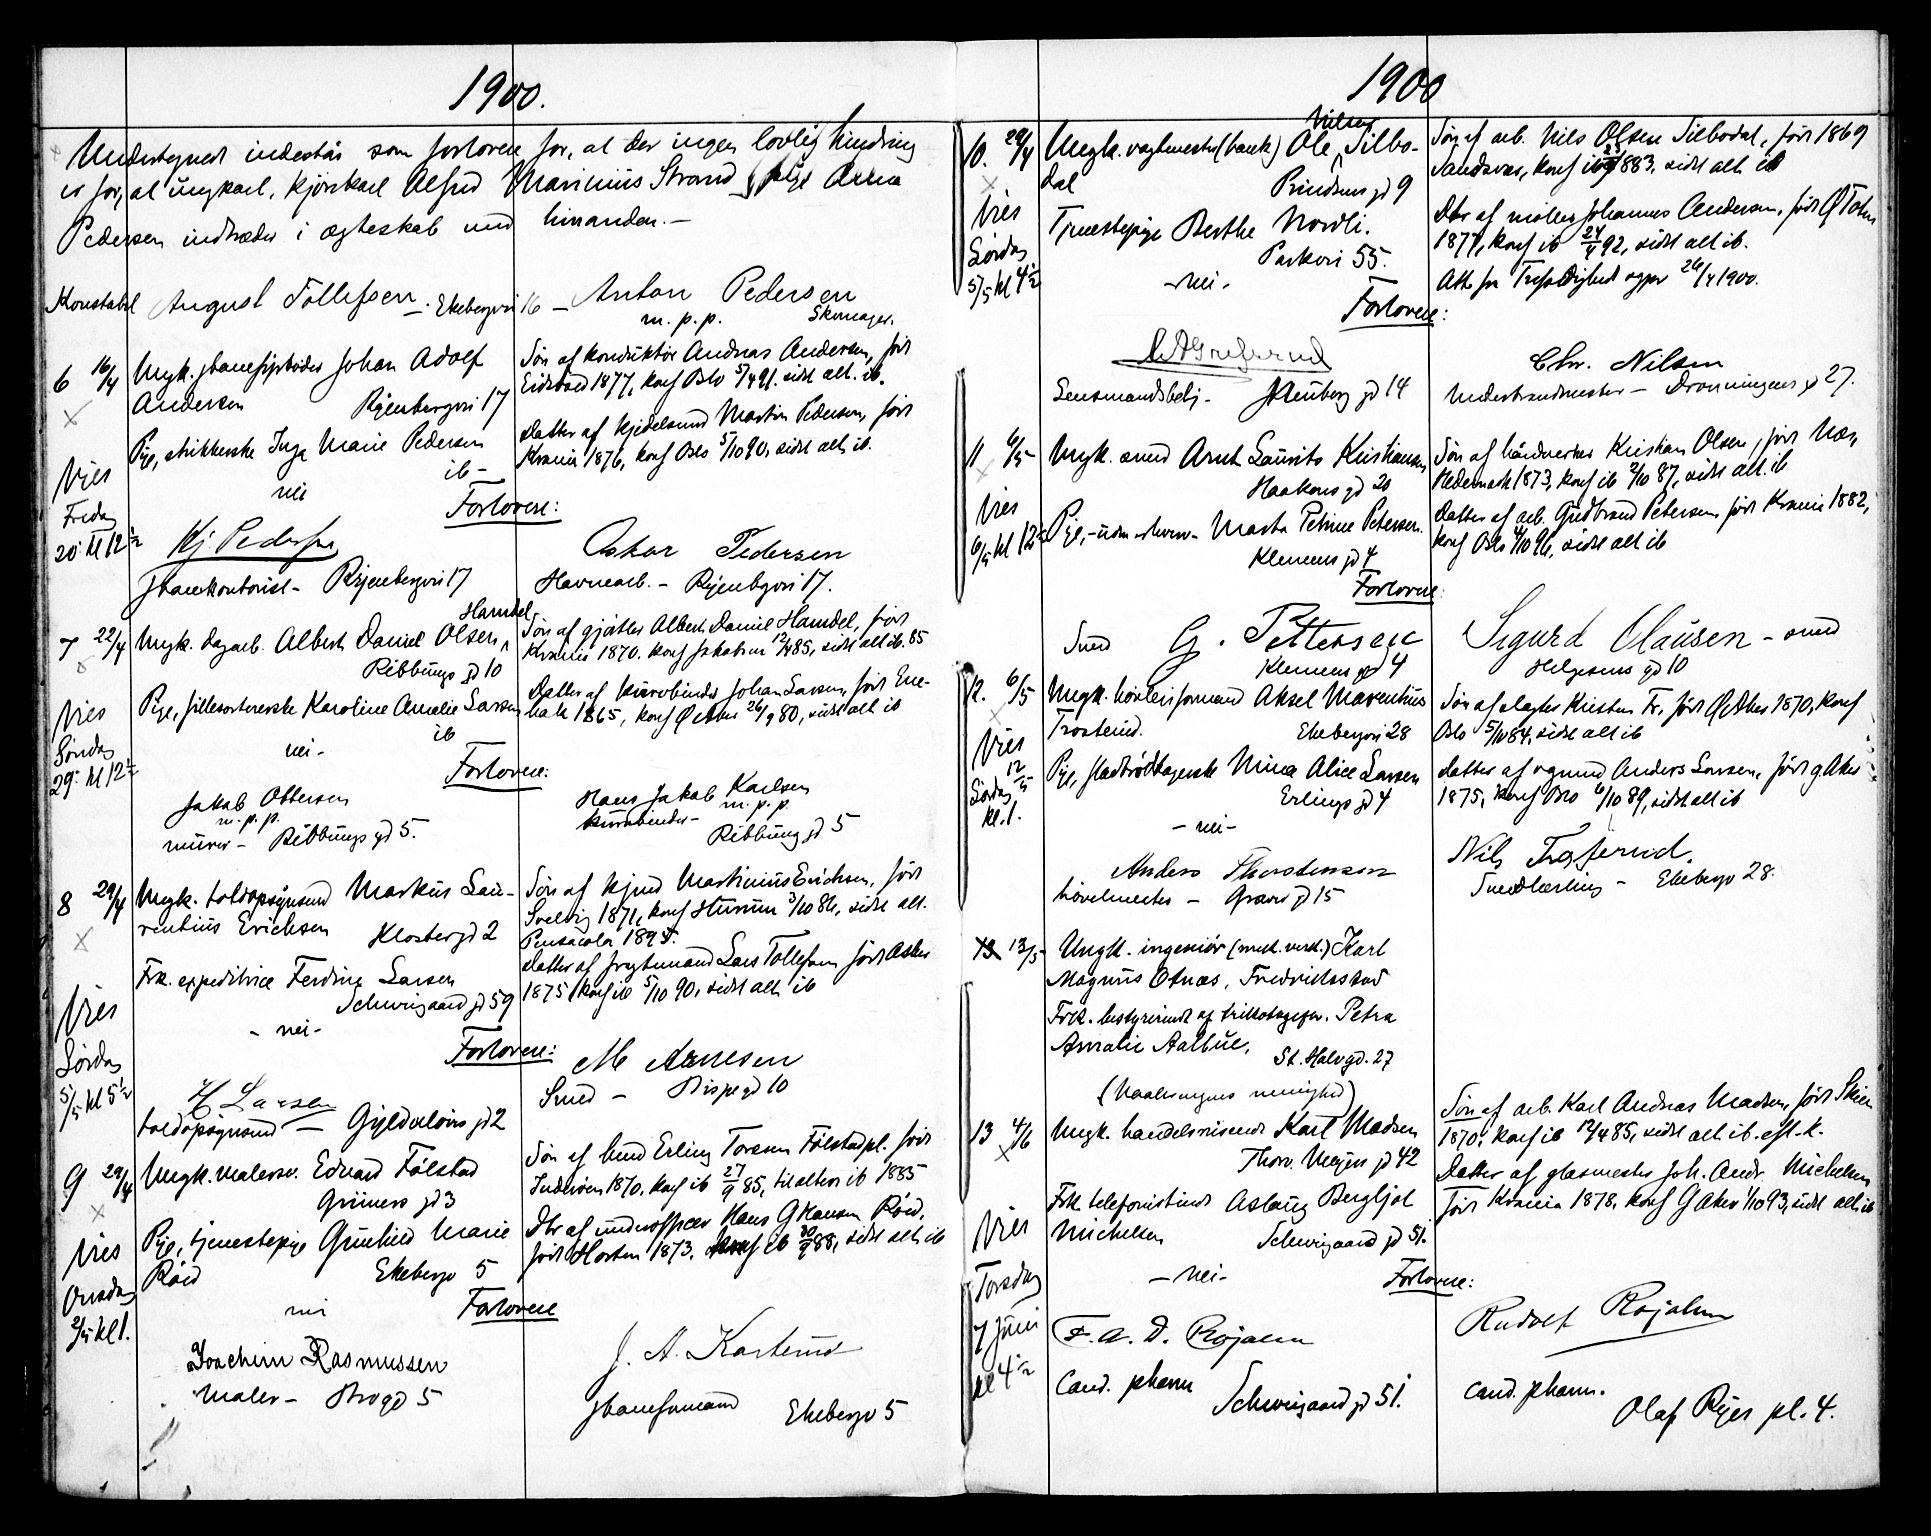 1900.
Undertegnede indestår som forlovere for, at der ingen lovlig hindring
er for, at ungkarl, kjørekarl Alfred Marinius Strand & pige Anna
Pedersen indtræder i ægteskab med hinanden. -
Konstabel August Tollefsen - Ekebergvei 16 - Anton Pedersen
m. p. p. Skomager.
6 16/4 Ungk. jbanefyrbøder Johan Adolf
Andersen Ryenbergvei 17
Pige, strikkerske Inga Marie Pedersen
ib -
nei
Vies
Fredag
20. kl 12 1/2
Søn af konduktør Andreas Andersen, født
Eidsvold 1877, konf Oslo 5/4 91. sidst alt. ib.
Datter af kjedelsmed Martin Pedersen, født
Krania 1876, konf Oslo 5/10 90, sidst alt. ib.
Forlovere:
Kj. Pedersen
jbanekontorist - Ryenbergvei 17
Oskar Pedersen
Havnearb. - Ryenbgvei 17.
7 22/4 Ungk. dagarb. Albert Daniel Olsen, Hamdel
Ribbungs gd 10
Pige, fillesortererske Karoline Amalie Larsen
ib
nei -
Vies
Søndag
29. kl 12 1/2
Søn af gjørtler Albert Daniel Hamdel, født
Krania 1870. konf Jakobs 12/4 85, sidst alt ib. 85
Datter af kurvebinder Johan Larsen, født Ene-
bak 1865, konf Ø Aker 26/9 80, sidst alt ib
Forlovere:
Jakob Ottersen
m. p. p.
murer - Ribbungs gd 5.
Hans Jakob Karlsen
m. p. p.
kurvebinder -
Ribbung gd 5
8 29/4 Ungk. toldopsynsmd Markus Lau-
rentius Erichsen Klostergd 2
Frk. expeditrice Ferdine Larsen
Schweigaard gd 59
- nei -
Vies
Lørdag
5/5 kl 5 1/2
Søn af Martinius Erichsen, født
Svelvig 1871, konf Hurum 3/10 86, sidst alt.
Pensacola 1895.
Datter af Lars Tollefsen født Asker
1875, konf ib 5/10 90, sidst alt ib
Forlovere:
H Larsen
toldopsynsmd - Gyldenløves gd 2
M Arnesen
Smed - Bispegd 10
9 29/4 Ungk. malersv. Edvard Følstad
Grüners gd 3
Pige, tjenestepige Gunhild Marie
Røed Ekebergv 5
nei
Vies
Onsdag
2/5 kl 1.
Søn af Erling Toresen Følstadpl. født
Inderøen 1870. konf ib 27/9 85, til alters ib 1885
Dtr af underofficer Hans G Hansen Røed,
født Horten 1873. konf ib 30/9 88, sidst alt ib
Forlovere
Joachim Rasmussen
Maler - Brogd 5
J. A. Karterud
jbaneformand Ekebergv 5
1900
10. 29/4 Ungk. vagtmester (bank) Ole Nilsen Silbo-
dal Prindsens gd 9
Tjenestepige Berthe Nordli.
Parkvei 55.
- nei -
Vies
Lørdag
5/5 kl 4 1/2
Søn af arb. Nils Olsen Silbodal, født 1869
konf ib 1883, sidst alt ib
Dtr af møller Johannes Andersen, født Ø Toten
1877, konf ib 24/4 92, sidst alt ib.
Att. fra Trefoldighed 26/4 1900.
Forlovere:
Lensmandsbetj - gd 14
Chr. Nilsen
Underbrandmester - Dronningens gd 27.
11 6/5 Ungk. smed Arnt Laurits Kristiansen
Haakons gd 20
Pige, - Marta Petrine Petersen.
Klemens gd 4
Vies
6/5 kl 12 1/2
Søn af håndverker Kristian Olsen, født Næs,
Hedemark 1873, konf ib 2/10 87, sidst alt. ib
Datter af arb. Gudbrand Petersen, født Krania 1882,
konf Oslo 4/10 96, sidst alt ib
Forlovere:
Smed G. Pettersen
Klemens gd 4
Sigurd Olausen - smed
Helgesens gd 10
12. 6/5 Ungk. høvleriformand Aksel Marentius
Trosterud. Ekebergvei 28
Pige, Mina Alice Larsen
Erlings gd 4
- nei -
Vies
Lørdag 12/5
kl. 1.
Søn af slagter Kristen Tr, født Ø Aker 1870, konf
Oslo 5/10 84, sidst alt ib
Datter af vognmd Anders Larsen, født Ø Aker
1875, konf Oslo 6/10 89, sidst alt ib
Anders Thorstensen
høvelmester - gd 15
Nils Trosterud.
Smedlærling - Ekebergv 28.
13 13/5 Ungk. ingeniør (mek. verkst.) Karl
Magnus Otnæs, Fredriksstad
Frk. bestyrerinde af trikotagefor. Petra
Amalie Aalbue, St. Halvgd. 27
(Vaalerengens menighed)
13 4/6 Ungk. handelsreisende Karl Madsen
Thorv. Meyers gd 42
Frk telefonistinde Aslaug Bergljot
Michelsen Schweigaard gd 51.
- nei -
Vies
Torsdag
7 Juni
kl 4 1/2
Søn af arb. Karl Andreas Madsen, født Skien
1870, konf ib 12/4 85, sidst alt. ib. efl. k.
Datter af glasmester Joh. Andr. Michelsen
født Krania 1878, konf G Aker 1/10 93, sidst alt ib
Forlovere:
F. A. D. Rojahn
Cand. pharm Schweigaard gd 51.
Rudolf Rojahn
cand. pharm.
Olaf Ryes pl. 4.